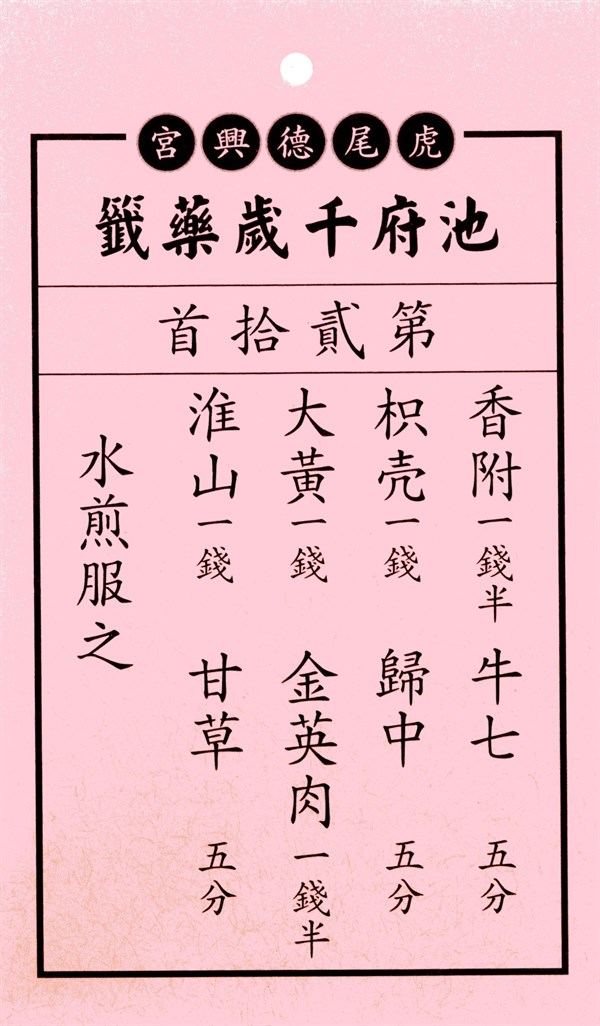 虎尾德興宮
池府千歲藥籤
第貳拾首
香附一錢半 牛七五分
枳壳一錢 歸中五分
大黃一錢 金英肉一錢半
淮山一錢 甘草五分
水煎服之